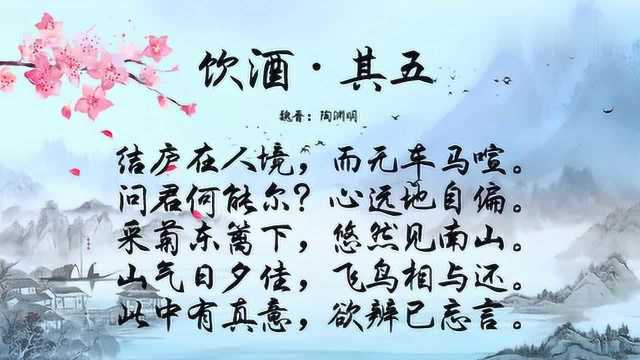 饮酒·其五
魏晋：陶渊明
结庐在人境，而无车马喧。
问君何能尔？心远地自偏。
采菊东篱下，悠然见南山。
山气日夕佳，飞鸟相与还。
此中有真意，欲辨已忘言。